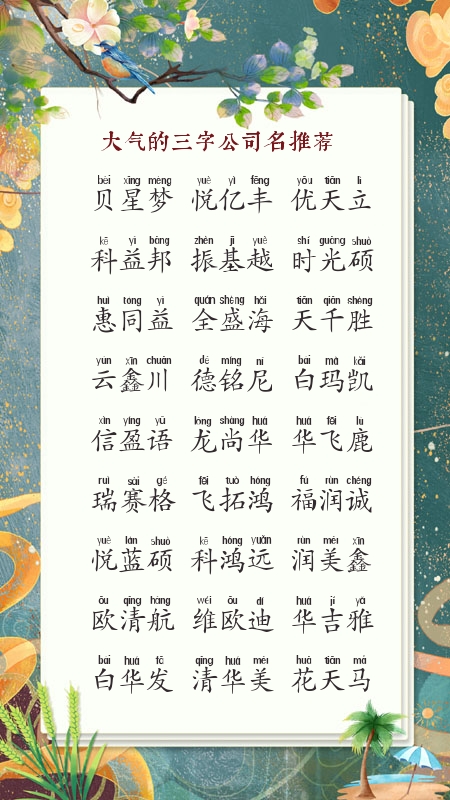 大气的三字公司名推荐
bèi xīng mèng yuè yì fēng yōu tiān lì
贝星梦 悦亿丰 优天立
kē yì bāng zhèn jī yuè shí guāng shuò
科益邦 振基越 时光硕
huì tóng yì quán shèng hǎi tiān qiān shèng
惠同益 全盛海 天千胜
yún xīn chuān dé míng ní bái mǎ kǎi
云鑫川 德铭尼 白玛凯
xìn yíng yǔ lóng shàng huá huá fēi lù
信盈语 龙尚华 华飞鹿
ruì sài gé fēi tuò hóng fú rùn chéng
瑞赛格 飞拓鸿 福润诚
yuè lán shuò kē hóng yuǎn rùn měi xīn
悦蓝硕 科鸿远 润美鑫
ōu qīng háng wéi ōu dí huá jí yǎ
欧清航 维欧迪 华吉雅
bái huá fā qīng huá měi huā tiān mǎ
白华发 清华美 花天马